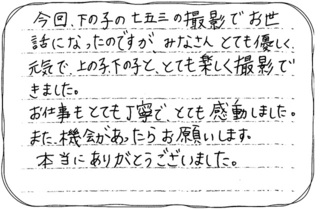 今回、下の子の七五三の撮影でお世
話になったのですが みなさん とても優しく、
元気で、上の子、下の子と、とても楽しく撮影で
きました。
お仕事もとても丁寧で、とても感動しました。
また、機会があったらお願いします。
本当にありがとうございました。